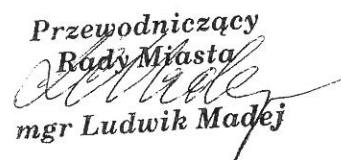 Przewodniczący
Rady Miasta
mgr Ludwik Madej